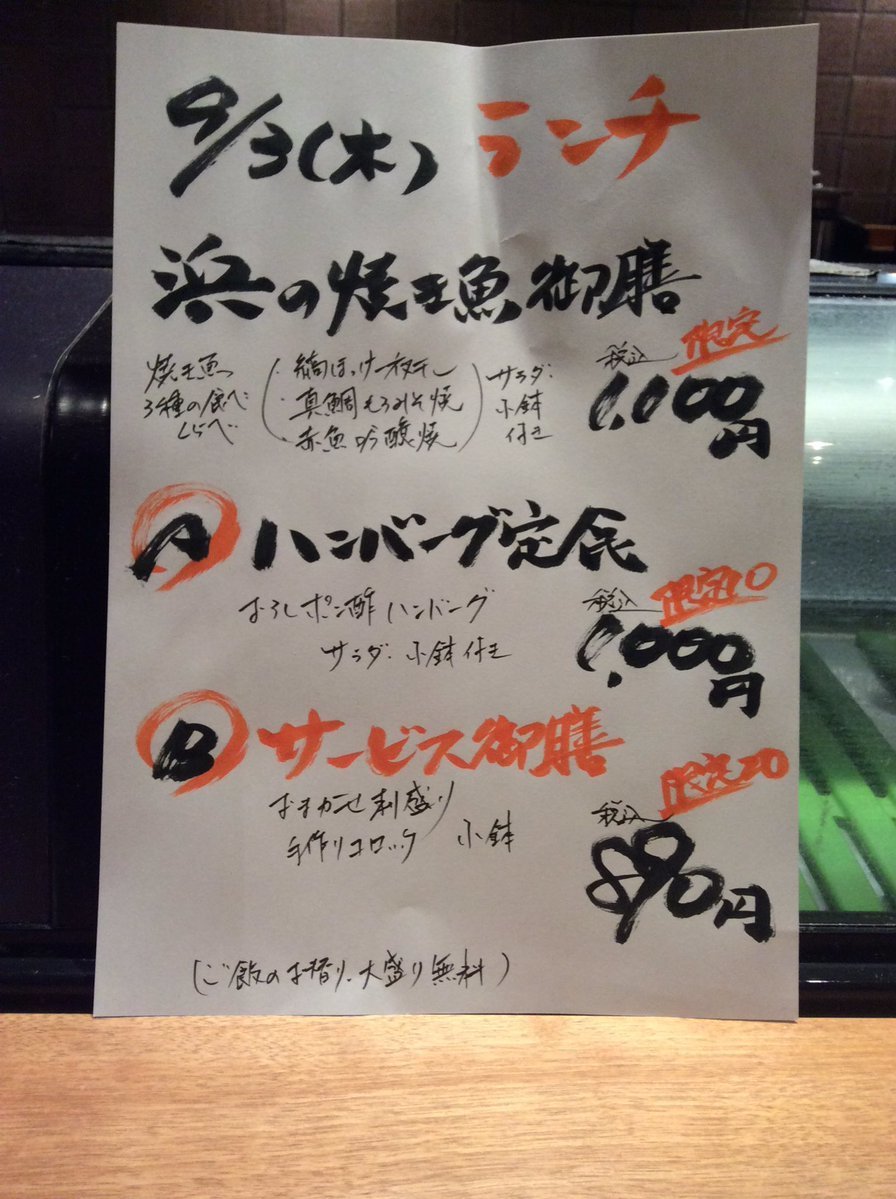 9/3(木) ランチ
浜の焼き魚御膳
限定
税込
1,100円
焼き魚
3種の食べ
くらべ
・縞ほっけ一夜干し
・真鯛もろみそ焼
・赤魚吟醸焼
サラダ・
小鉢
付き
A ハンバーグ定食
限定10
税込
1,000円
おろしポン酢ハンバーグ
サラダ・小鉢付き
B サービス御膳
限定20
税込
890円
おまかせ刺盛り
手作りコロッケ 小鉢
(ご飯のお替り、大盛り無料)